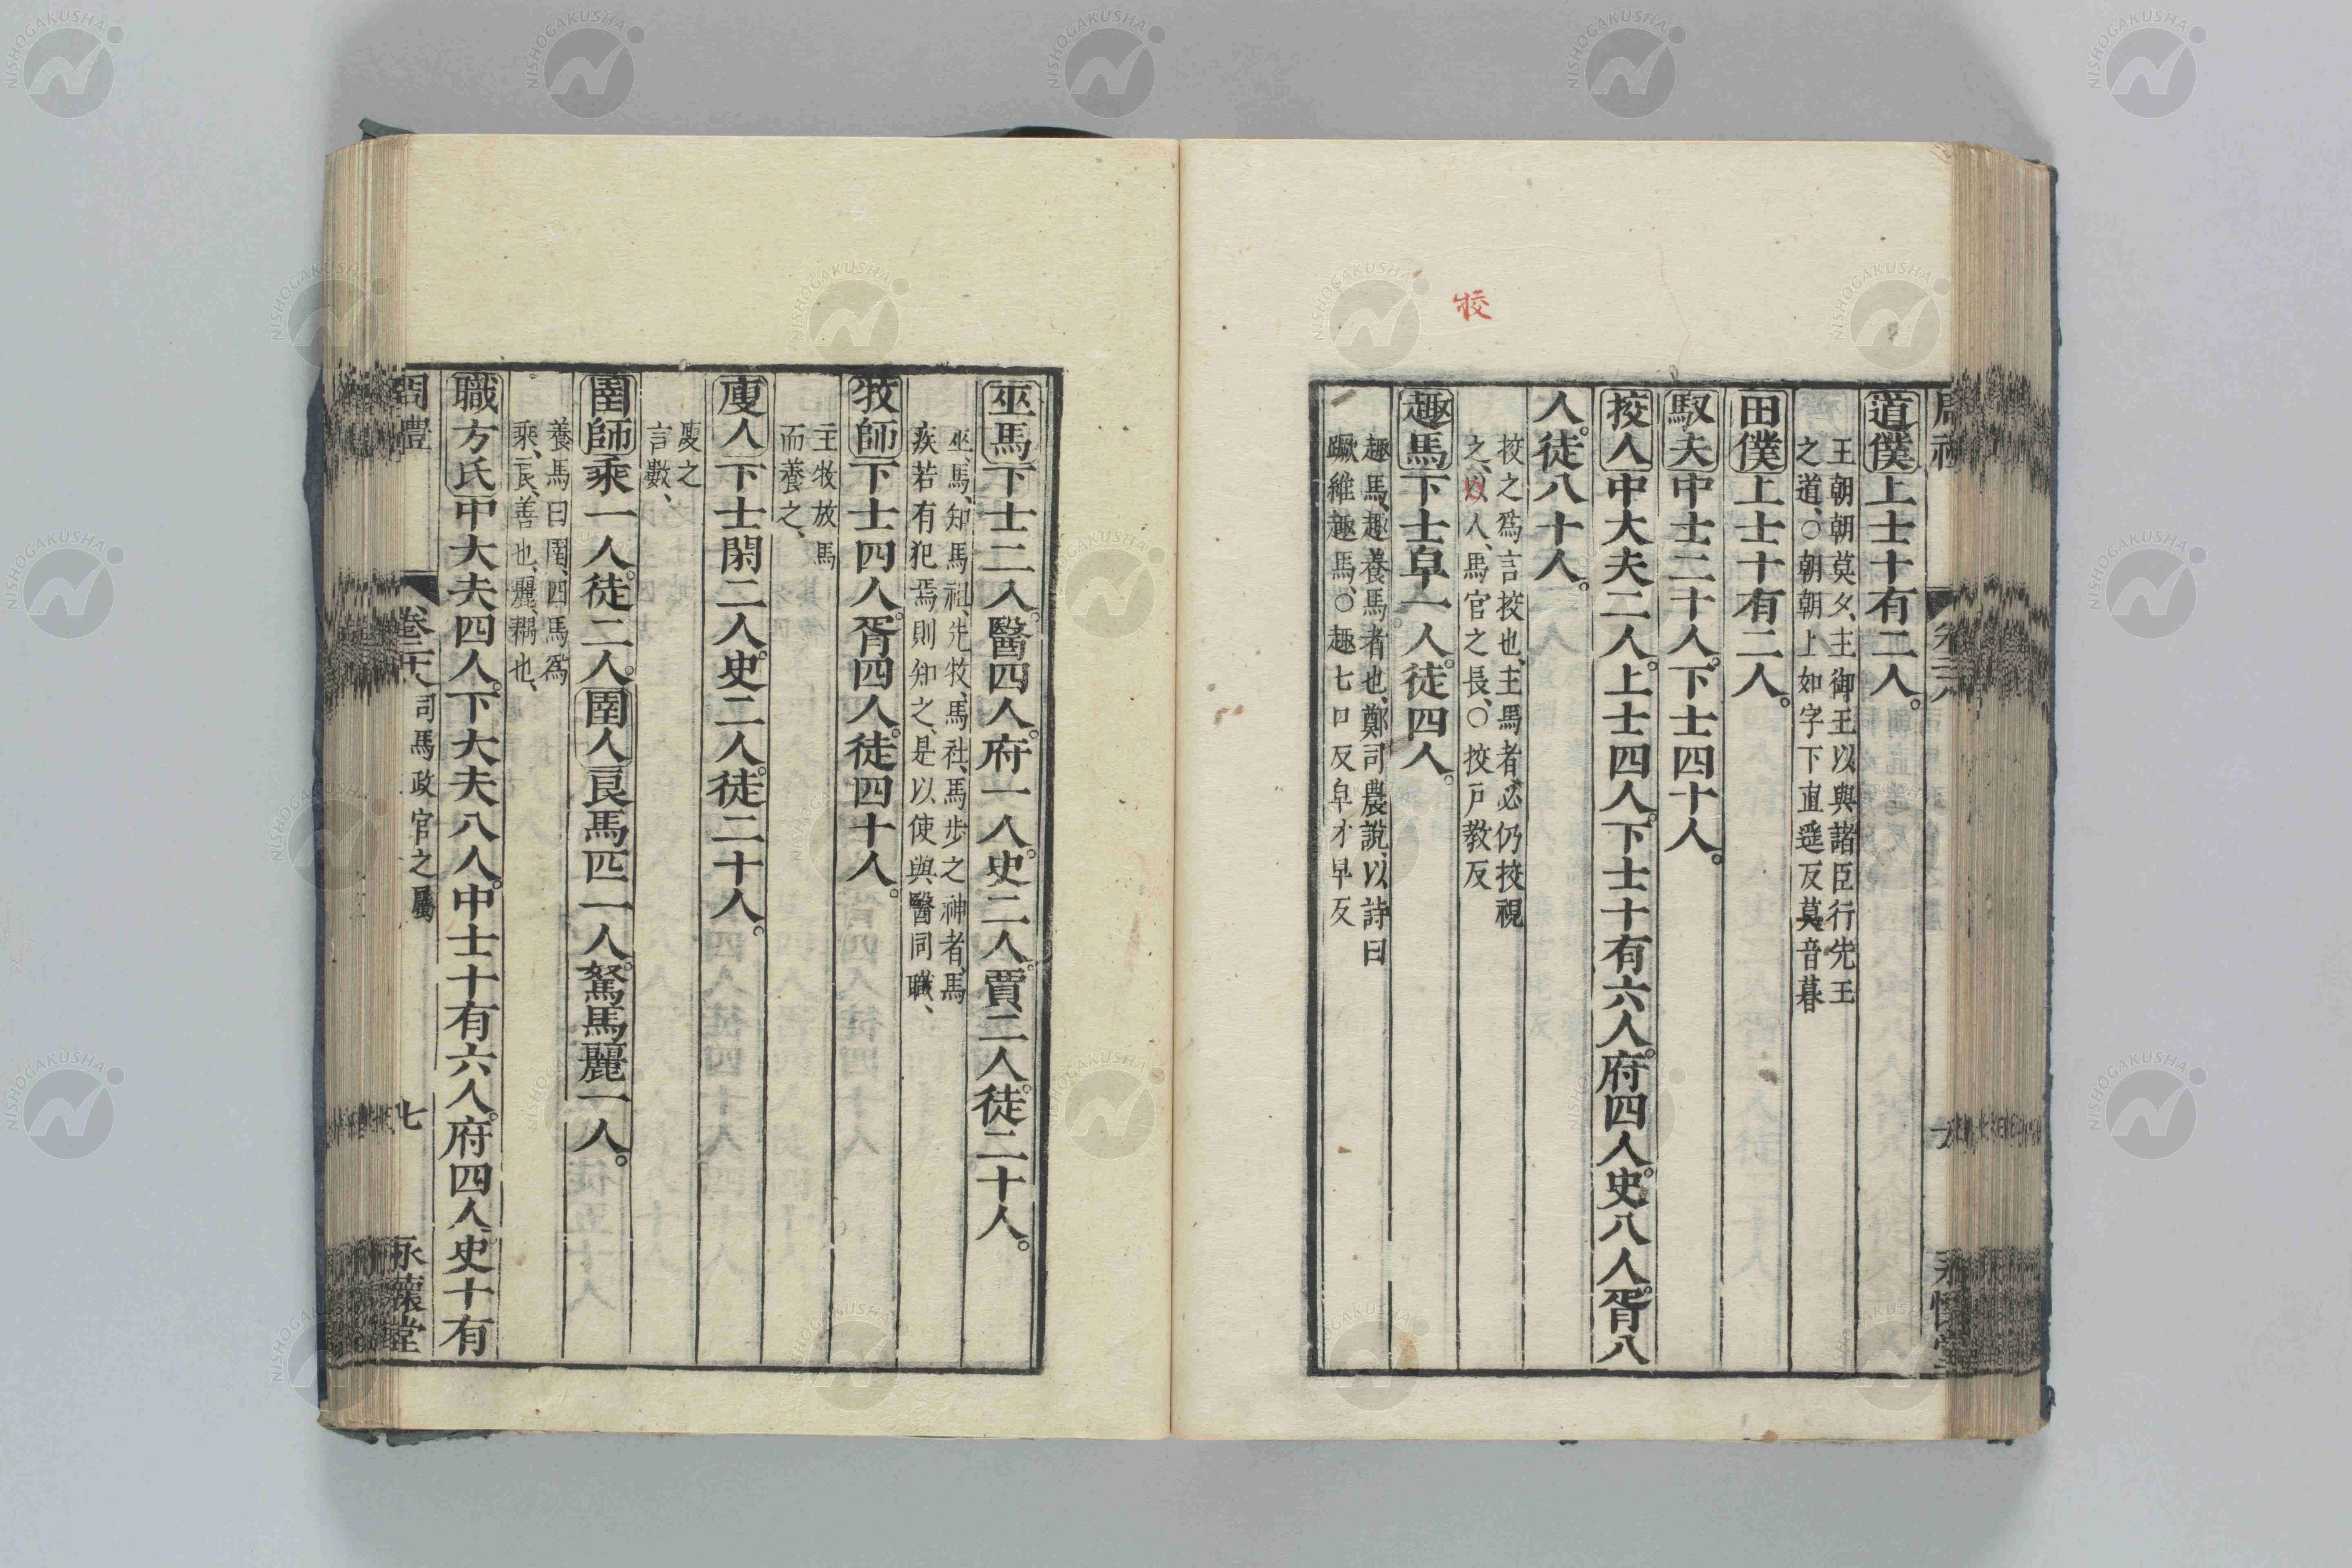 校
道僕上士十有二人。
王朝朝莫夕、主御王以與諸臣行先王
之道、○朝朝上如字下直遥反莫音暮
田僕上士十有二人。
馭夫中士二十人。下士四十人。
挍人中大夫二人。上士四人。下士十有六人。府四人。史八人。胥八
人。徒八十人。
挍之爲言挍也、主馬者必仍挍視
之、以人、馬官之長、○挍戸教反
趣馬下士皁一人。徒四人。
趣馬、趣養馬者也、鄭司農說、以詩曰
蹶維趣馬、○趣七口反皁才早反
巫馬下士二人。醫四人。府一人。史二人。賈二人。徒二十人。
巫馬、知馬祖、先牧、馬社、馬步之神者、馬
疾若有犯焉則知之、是以使與醫同職、
牧師下士四人。胥四人。徒四十人。
主牧放馬
而養之、
廋人下士閑二人。史二人。徒二十人。
廋之
言數、
圉師乘一人。徒二人。圉人良馬匹一人。駑馬麗一人。
養馬曰圉、四馬爲
乘、良、善也、麗、耦也、
職方氏中大夫四人。下大夫八人。中士十有六人。府四人。史十有
周禮 司馬政官之屬 七 永懷堂
NISHOGAKUSHA